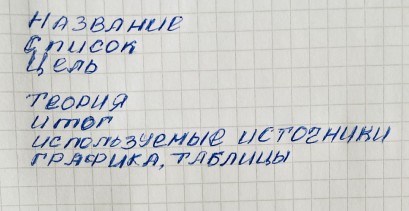 Название
Список
Цель
Теория
итог
используемые источники
графика, таблицы